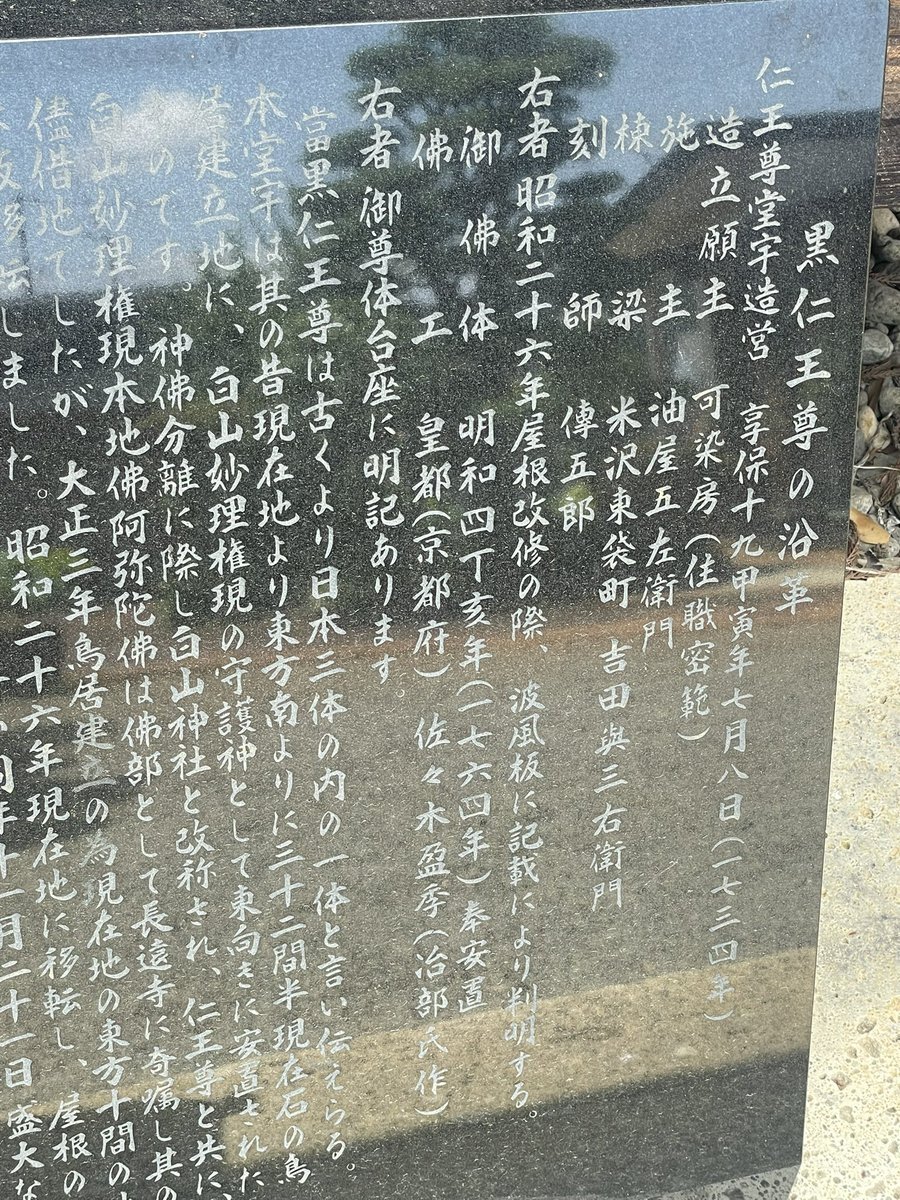 黒仁王尊の沿革
仁王尊堂宇造営 享保十九甲寅年七月八日(一七三四年)
造立願主 可染房(住職密範)
施主 油屋五左衛門
棟梁 米沢東袋町 吉田與三右衛門
刻師 傳五郎
右者昭和二十六年屋根改修の際、波風板に記載により判明する。
御佛体 明和四丁亥年(一七六四年)奉安置
佛工 皇都(京都府) 佐々木盈季(治部氏作)
右者御尊体台座に明記あります。
當黒仁王尊は古くより日本三体の内の一体と言い伝えらる。
本堂宇は其の昔現在地より東方南よりに三十二間半現在石の鳥
居建立地に、白山妙理権現の守護神として東向きに安置された
のてす。神佛分離に際し白山神社と改称され、仁王尊と共に、
白山妙理権現本地佛阿弥陀佛は佛部として長遠寺に寄嘱し其の
儘借地てしたが、大正三年鳥居建立の為現在地の東方十間の
移転しました。昭和二十六年現在地に移転し、屋根の
年十一月二十一日盛大な